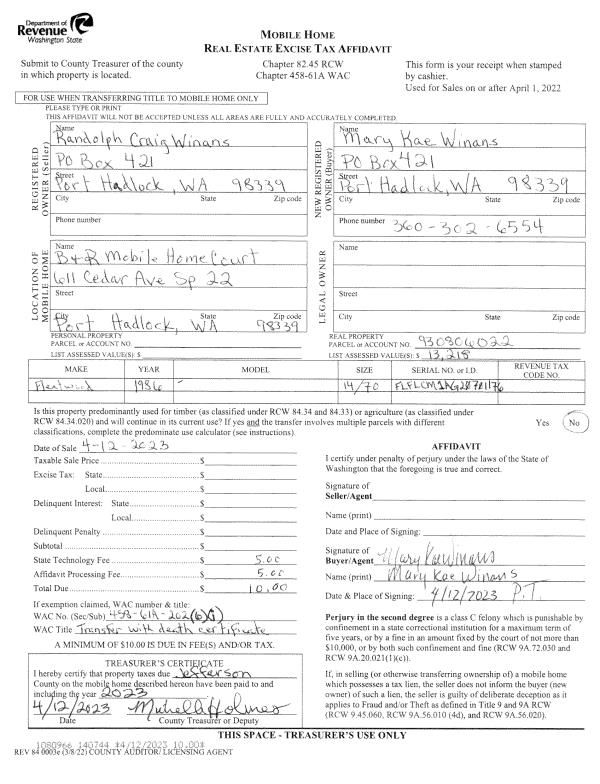 Department of
Revenue
Washington State
MOBILE HOME
REAL ESTATE EXCISE TAX AFFIDAVIT
Submit to County Treasurer of the county
in which property is located.
Chapter 82.45 RCW
Chapter 458-61A WAC
This form is your receipt when stamped
by cashier.
Used for Sales on or after April 1, 2022
FOR USE WHEN TRANSFERRING TITLE TO MOBILE HOME ONLY
PLEASE TYPE OR PRINT
THIS AFFIDAVIT WILL NOT BE ACCEPTED UNLESS ALL AREAS ARE FULLY AND ACCURATELY COMPLETED.
REGISTERED
OWNER (Seller)
Name
Randolph Craig Winans
PO Box 421
Street
Port Hadlock, WA 98339
City State Zip code
Phone number
NEW REGISTERED
OWNER (Buyer)
Name
Mary Kae Winans
PO Box 421
Street
Port Hadlock, WA 98339
City State Zip code
Phone number 360-302-6554
LOCATION OF
MOBILE HOME
Name
B+R Mobile Home Court
611 Cedar Ave Sp 22
Street
City State Zip code
Port Hadlock, WA 98339
LEGAL OWNER
Name
Street
City State Zip code
PERSONAL PROPERTY
PARCEL or ACCOUNT NO.
LIST ASSESSED VALUE(S): $
REAL PROPERTY
PARCEL or ACCOUNT NO. 930806022
LIST ASSESSED VALUE(S): $ 13,218
MAKE YEAR MODEL SIZE SERIAL NO. or I.D. REVENUE TAX CODE NO.
Fleetwood 1986 - 14/70
Is this property predominantly used for timber (as classified under RCW 84.34 and 84.33) or agriculture (as classified under
RCW 84.34.020) and will continue in its current use? If yes and the transfer involves multiple parcels with different
classifications, complete the predominate use calculator (see instructions).
Yes No
Date of Sale 4-12-2023
Taxable Sale Price $
Excise Tax: State $
Local $
Delinquent Interest: State $
Local $
Delinquent Penalty $
Subtotal $
State Technology Fee $ 5.00
Affidavit Processing Fee $ 5.00
Total Due $ 10.00
If exemption claimed, WAC number & title:
WAC No. (Sec/Sub) 458-61A-202(6)(i)
WAC Title Transfer with death certificate
A MINIMUM OF $10.00 IS DUE IN FEE(S) AND/OR TAX.
TREASURER'S CERTIFICATE
I hereby certify that property taxes due Jefferson
County on the mobile home described hereon have been paid to and
including the year 2023
4/12/2023 Michelle Holmes
Date County Treasurer or Deputy
AFFIDAVIT
I certify under penalty of perjury under the laws of the State of
Washington that the foregoing is true and correct.
Signature of
Seller/Agent
Name (print)
Date and Place of Signing:
Signature of
Buyer/Agent Mary Kae Winans
Name (print) Mary Kae Winans
Date & Place of Signing: 4/12/2023 P.T.
Perjury in the second degree is a class C felony which is punishable by
confinement in a state correctional institution for a maximum term of
five years, or by a fine in an amount fixed by the court of not more than
$10,000, or by both such confinement and fine (RCW 9A.72.030 and
RCW 9A.20.021(1)(c)).
If, in selling (or otherwise transferring ownership of) a mobile home
which possesses a tax lien, the seller does not inform the buyer (new
owner) of such a lien, the seller is guilty of deliberate deception as it
applies to Fraud and/or Theft as defined in Title 9 and 9A RCW
(RCW 9.45.060, RCW 9A.56.010 (4d), and RCW 9A.56.020).
THIS SPACE - TREASURER'S USE ONLY
1080966 140744 *4/12/2023 10.00*
REV 84 0003e (3/8/22) COUNTY AUDITOR/ LICENSING AGENT